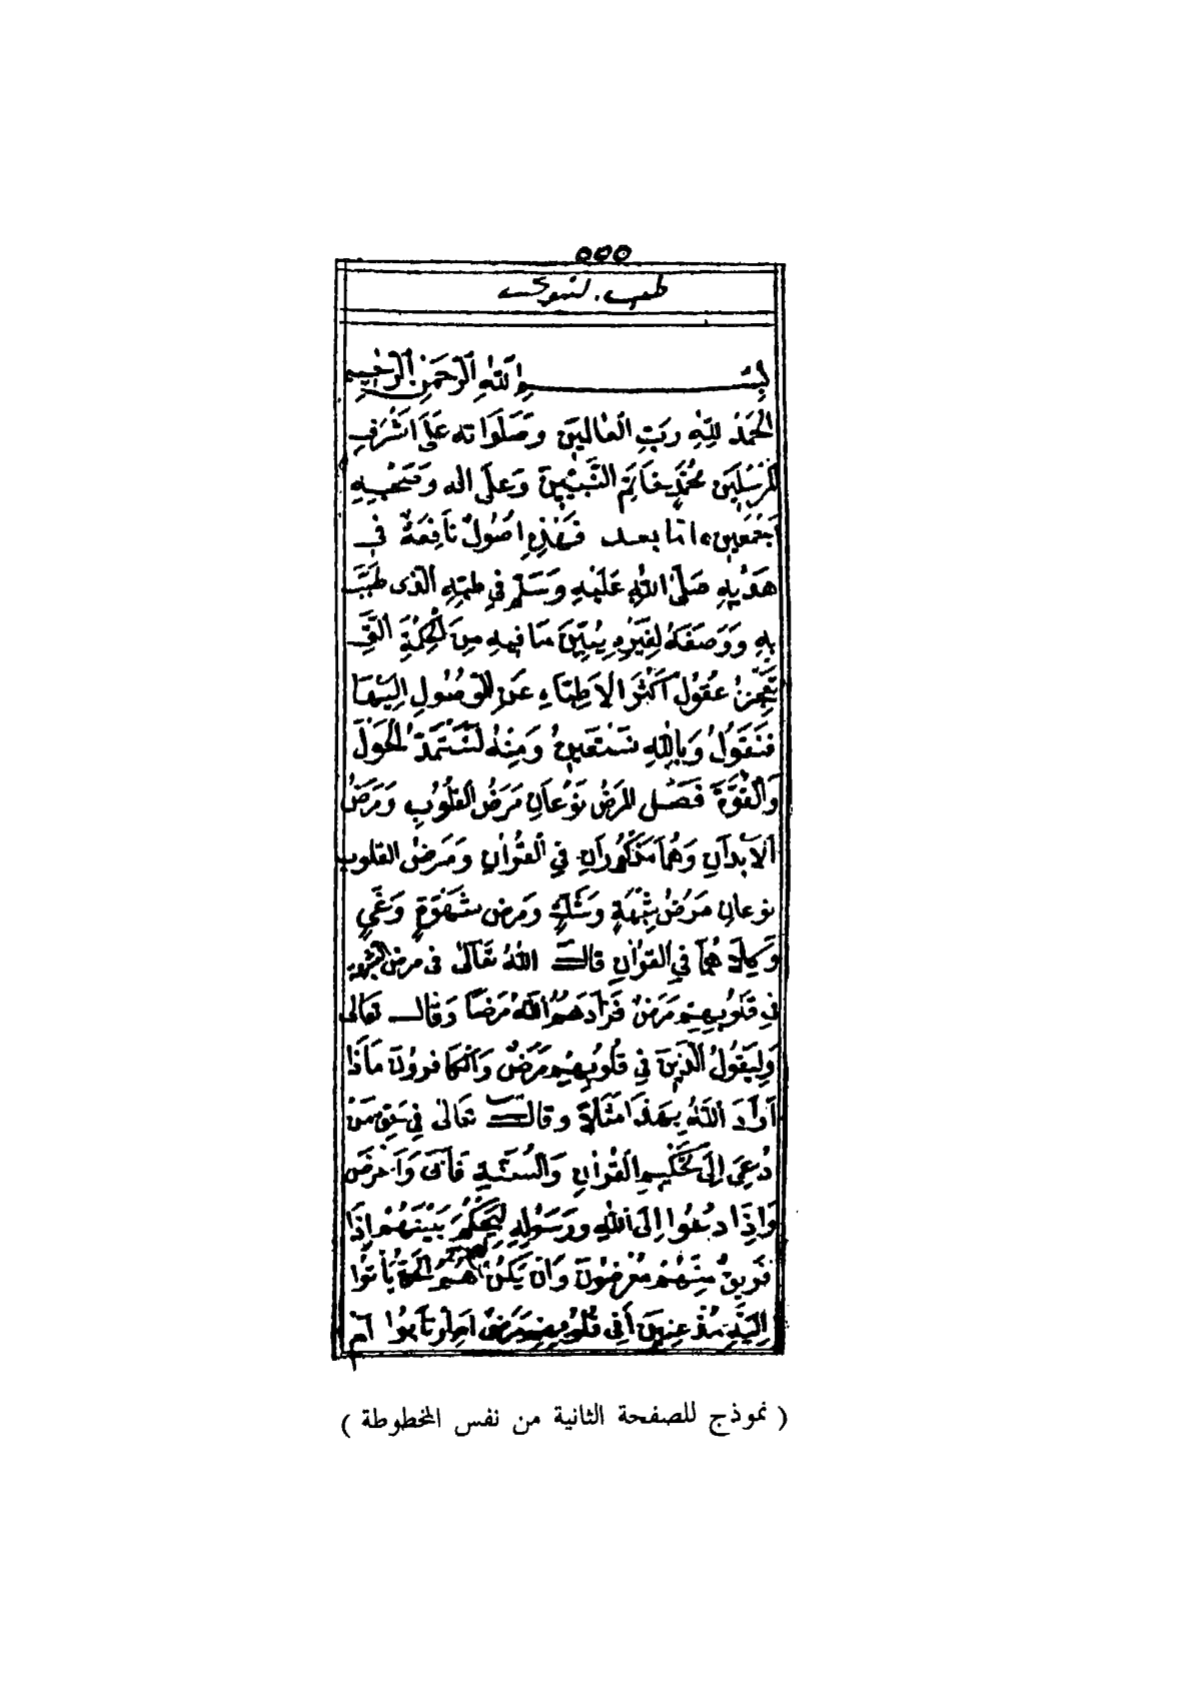 ٥٥٥
طب نبوى
بِسْمِ اللهِ الرَّحْمَنِ الرَّحِيمِ
الحَمْدُ لِلَّهِ رَبِّ الْعَالَمِينَ وَصَلَوَاته عَلَى اَشْرَفِ
المُرْسَلِينَ مُحَمَّدٍ خَاتَمِ النَّبِيِّينَ وَعَلَى اله وَصَحْبِهِ
اَجْمَعِينَ، اما بعد فَهَذِهِ اُصُولٌ نَافِعَةٌ فى
هَدْيِهِ صَلَّى اللهُ عَلَيْهِ وَسَلَّمَ فِي طِبِّهِ الَّذى طَبَّبَ
بِهِ وَوَصَفَهُ لِغَيْرِهِ يُبَيِّنُ مَا فِيهِ مِنَ الْحِكْمَةِ الَّتِى
تَعْجَزُ عُقُولُ أَكْثَرِ الاَطِبَّاءِ عَنِ الْوُصُولِ اِلَيْهَا
فَنَقُولُ وَبِاللهِ نَسْتَعِينُ وَمِنْهُ نَسْتَمِدُّ الْحَوْلَ
وَالْقُوَّةَ فَصْل المَرَضُ نَوْعَانِ مَرَضُ القُلُوبِ وَمَرَضُ
الاَبْدَانِ وَهُمَا مَذْكُورَانِ فِي الْقُرْانِ وَمَرَضُ القلوب
نوعانِ مَرَضُ شُبْهَةٍ وَشَكٍّ وَمَرض شَهْوَةٍ وَغَيٍّ
وَكِلَاهُمَا فِي القرانِ قال اللهُ تَعَالَى فى مرض الشبهة
فِي قُلُوبِهِمْ مَرَضٌ فَزَادَهُمُ اللهُ مَرَضًا وَقال تَعَالى
وَلِيَقُولَ الَّذِينَ فِي قُلُوبِهِمْ مَرَضٌ وَالْكَافرونَ مَاذَا
اَرَادَ اللهُ بِهَذَا مَثَلًا وقال تعَالى فِي حَقِّ مَنْ
دُعِيَ اِلَى تَحْكِيمِ القُرْانِ وَالسُّنَّةِ فَاَبَى وَاَعْرَضَ
وَاِذَا دُعُوا اِلَى اللهِ وَرَسُولِهِ لِيَحْكُمَ بَيْنَهُمْ اِذَا
فَرِيقٌ مِنْهُمْ مُعْرِضُونَ وَاِنْ يَكُنْ لَهُمُ الْحَقُّ يَأْتُوا
اِلَيْهِ مُذْعِنِينَ اَفِى قُلُوبِهِمْ مَرَضٌ اَمِ ارْتَابُوا اَمْ
( نموذج للصفحة الثانية من نفس المخطوطة )